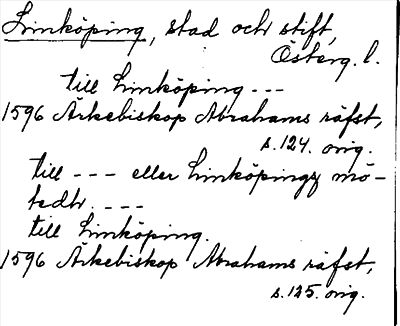 Linköping, stad och stift,
Österg. l.
till Linköping ---
1596 Ärkebiskop Abrahams räfst,
s. 124. orig.
till --- eller Linköpingz mö-
tedh. ---
till Linköping.
1596 Ärkebiskop Abrahams räfst,
s. 125. orig.